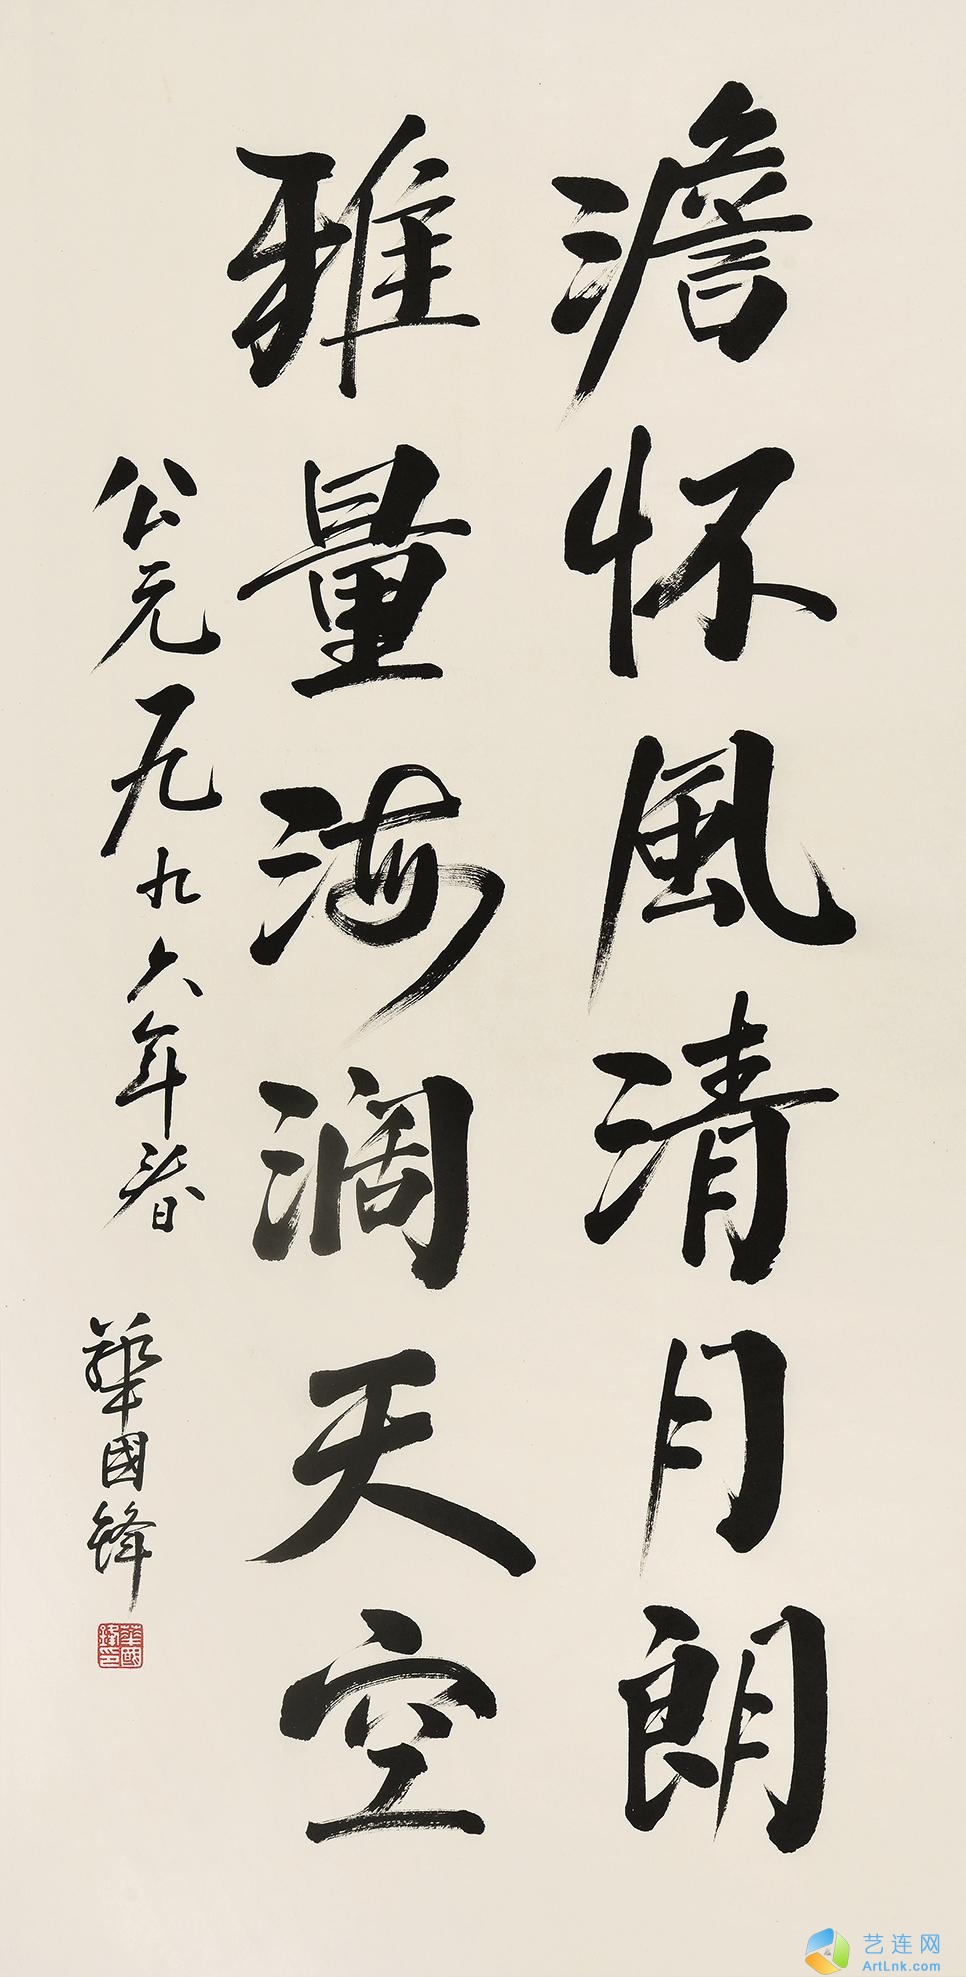 澹怀风清月朗
雅量海阔天空
公元一九九六年春
華國锋
華國鋒印
艺连网
ArtLnk.com